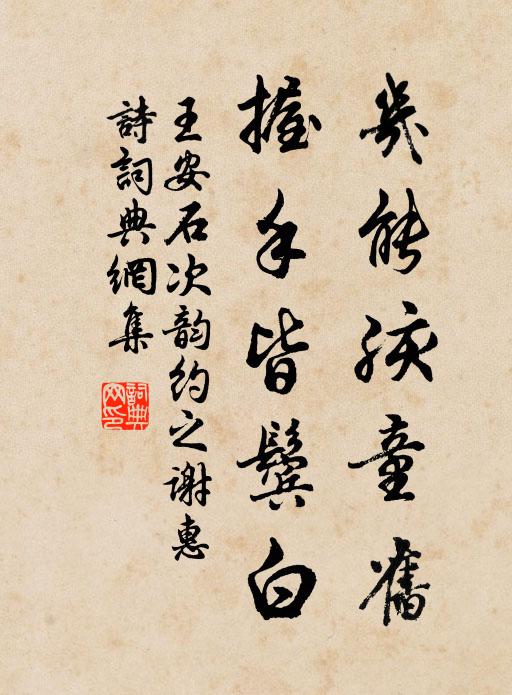 幾能孩童舊
握手皆鬢白
王安石次韵約之謝惠
詩詞典網集
詞典網印